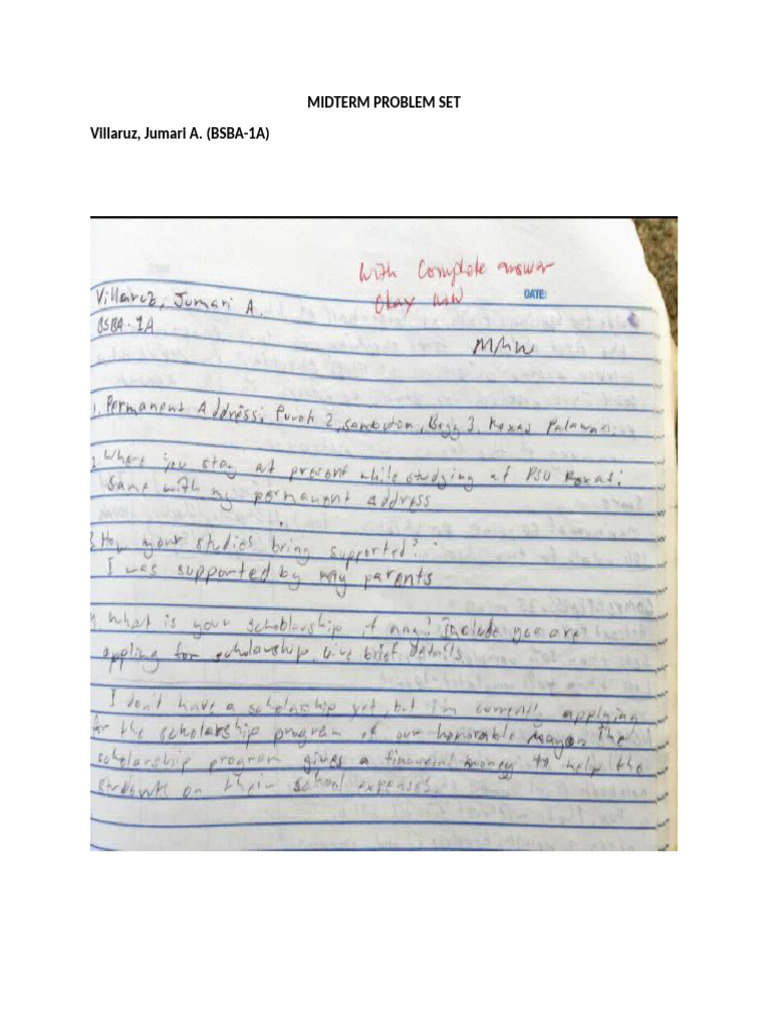 MIDTERM PROBLEM SET
Villaruz, Jumari A. (BSBA-1A)
With Complete answer
Okay
DATE:
Villaruz, Jumari A.
BSBA-1A
1. Permanent Address: Purok 2, Brgy 3, Roxas Palawan.
2. Where you stay at present while studying at PSU Roxas:
Same with my permanent address
3. How your studies bring supported?
I was supported by my parents
4. What is your scholarship if any? Include you are
appling for scholarship. Give brief details
I don't have a scholarship yet, but I'm currently applying
for the scholarship program of our honorable mayor. The
scholarship program gives a financial money to help the
students on their school expenses.